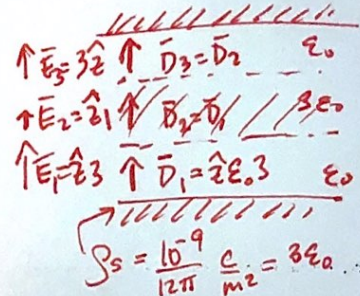 ↑ E̅₃=3ẑ ↑ D̅₃=D̅₂ ε₀
↑ E̅₂=ẑ1 ↑ D̅₂=D̅₁ 3ε₀
↑ E̅₁=ẑ3 ↑ D̅₁=ẑε₀3 ε₀
ρs = 10⁻⁹/12π C/m² = 3ε₀